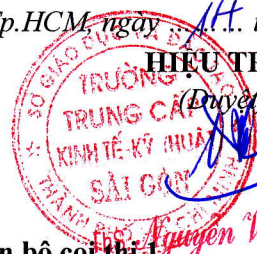 Tp.HCM, ngày ........ 14
HIỆU TR
(Duyệt
SỞ GIÁO DỤC
TRƯỜNG
TRUNG CẤP
KINH TẾ-KỸ THUẬT
SÀI GÒN
THÀNH
ThS. Nguyễn V
n bộ coi thi 1